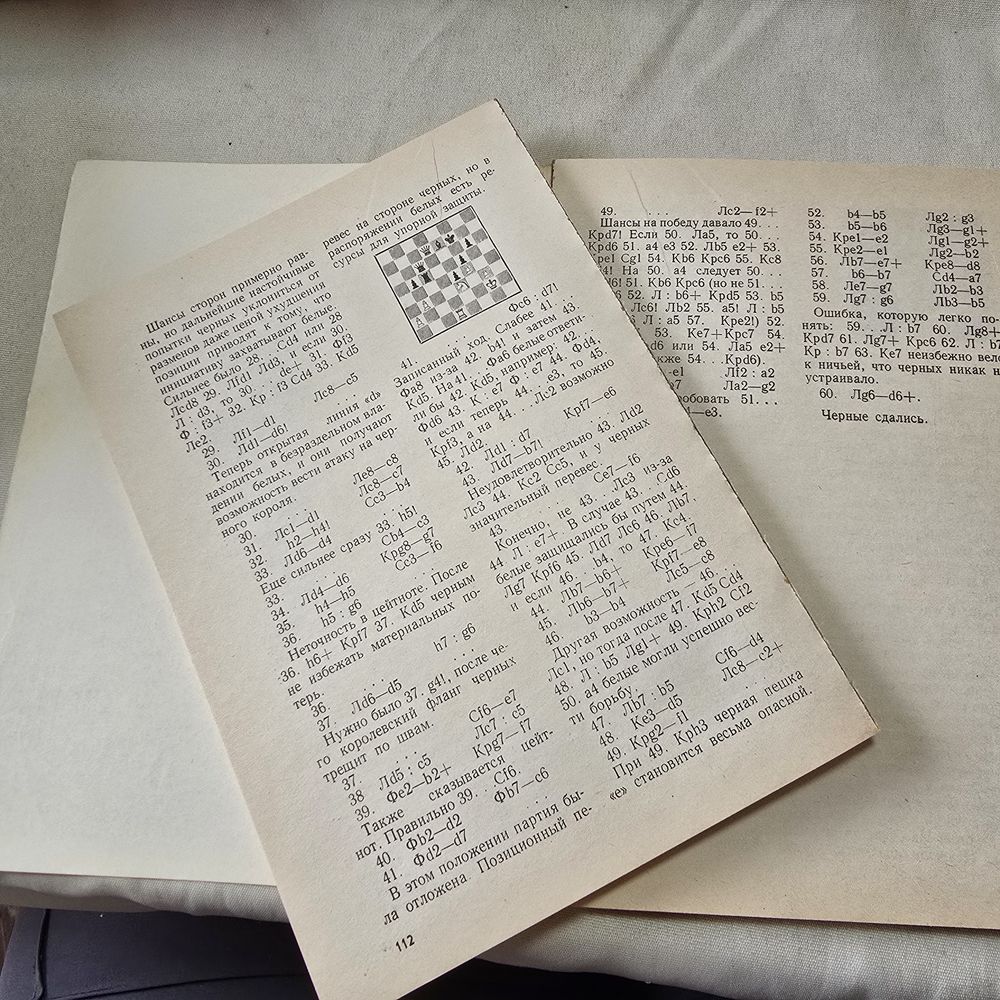 Шансы сторон примерно рав-
ны, но дальнейшие настойчивые
попытки черных уклониться от
разменов даже ценой ухудшения
позиции приводят к тому, что
инициативу захватывают белые.
Сильнее было 28. ... Cd4 или 28 ...
Лcd8 29. Лfd1 Лd3, и если 30.
Л : d3, то 30. ... de+ 31. Фf3
Ф : f3+ 32. Кр : f3 Cd4 33. Kd5
Ле2.
29. Лf1—d1 Лc8—c5
30. Лd1—d6!
Теперь открытая линия «d»
находится в безраздельном вла-
дении белых, и они получают
возможность вести атаку на чер-
ного короля.
30. . . . Ле8—c8
31. Лc1—d1 Лc8—c7
32. h2—h4! Cc3—b4
33 Лd6—d4
Еще сильнее сразу 33. h5!
33. . . . Cb4—c3
34. Лd4—d6 Kpg8—g7
35. h4—h5 Cc3—f6
36. h5 : g6
Неточность в цейтноте. После
36. h6+ Kpf7 37. Kd5 черным
не избежать материальных по-
терь.
36. . . . h7 : g6
37. Лd6—d5
Нужно было 37. g4!, после че-
го королевский фланг черных
трещит по швам.
37. . . . Cf6—e7
38 Лd5 : c5 Лc7 : c5
39. Фe2—b2+ Kpg7—f7
Также сказывается цейт-
нот. Правильно 39. . . Cf6.
40. Фb2—d2 Фb7—c6
41. Фd2—d7
В этом положении партия бы-
ла отложена. Позиционный пе-
112
ревес на стороне черных, но в
распоряжении белых есть ре-
сурсы для упорной защиты.
41. . . . Фc6 : d7!
Записанный ход. Слабее 41. . .
Фa8 из-за 42. b4! и затем 43.
Kd5. На 41. . . Фa6 белые ответи-
ли бы 42. Kd5, например: 42. . .
Фd6 43. К : e7 Ф : e7 44. Фd4,
и если теперь 44. . . e3, то 45.
Kpf3, а на 44. . . Лc2 возможно
45. Лd2.
42. Лd1 : d7 Kpf7—e6
43. Лd7—b7!
Неудовлетворительно 43. Лd2
Лc3 44. Kc2 Cc5, и у черных
значительный перевес.
43. . . . Ce7—f6
Конечно, не 43. . . Лc3 из-за
44. Л : e7+. В случае 43. . . Cd6
белые защищались бы путем 44.
Лg7 Kpf6 45. Лd7 Лc6 46. Лb7,
и если 46. . . b4, то 47. Kc4.
44. Лb7—b6+ Kpe6—f7
45. Лb6—b7+ Kpf7—e8
46. b3—b4 Лc5—c8
Другая возможность — 46. . .
Лc1, но тогда после 47. Kd5 Cd4
48. Л : b5 Лg1+ 49. Kph2 Cf2
50. a4 белые могли успешно вес-
ти борьбу.
47. Лb7 : b5 Cf6—d4
48. Ke3—d5 Лc8—c2+
49. Kpg2—f1
При 49. Kph3 черная пешка
«е» становится весьма опасной.
49. . . . Лc2—f2+
Шансы на победу давало 49. . .
Kpd7! Если 50. Лa5, то 50. . .
Kpd6 51. a4 e3 52. Лb5 e2+ 53.
Kpe1 Cg1 54. Kb6 Kpc6 55. Kc8
4! На 50. a4 следует 50. . .
d6! 51. Kb6 Kpc6 (но не 51. . .
6 52. Л : b6+ Kpd5 53. b5
Лc6! Лb2 55. a5! Л : b5
Л : a5 57. Kpe2!) 52.
53. Ke7+ Kpc7 54.
d6 или 54. Лa5 e2+
кже 54. . . Kpd6).
—e1 Лf2 : a2
7 Лa2—g2
робовать 51. . .
4—e3.
52. b4—b5 Лg2 : g3
53. b5—b6 Лg3—g1+
54. Kpe1—e2 Лg1—g2+
55. Kpe2—e1 Лg2—b2
56. Лb7—e7+ Kpe8—d8
57. b6—b7 Cd4—a7
58. Лe7—g7 Лb2—b3
59. Лg7 : g6 Лb3—b5
Ошибка, которую легко по-
нять: 59. . . Л : b7 60. Лg8+
Kpd7 61. Лg7+ Kpc6 62. Л : b7
Кр : b7 63. Ke7 неизбежно вело
к ничьей, что черных никак н
устраивало.
60. Лg6—d6+.
Черные сдались.